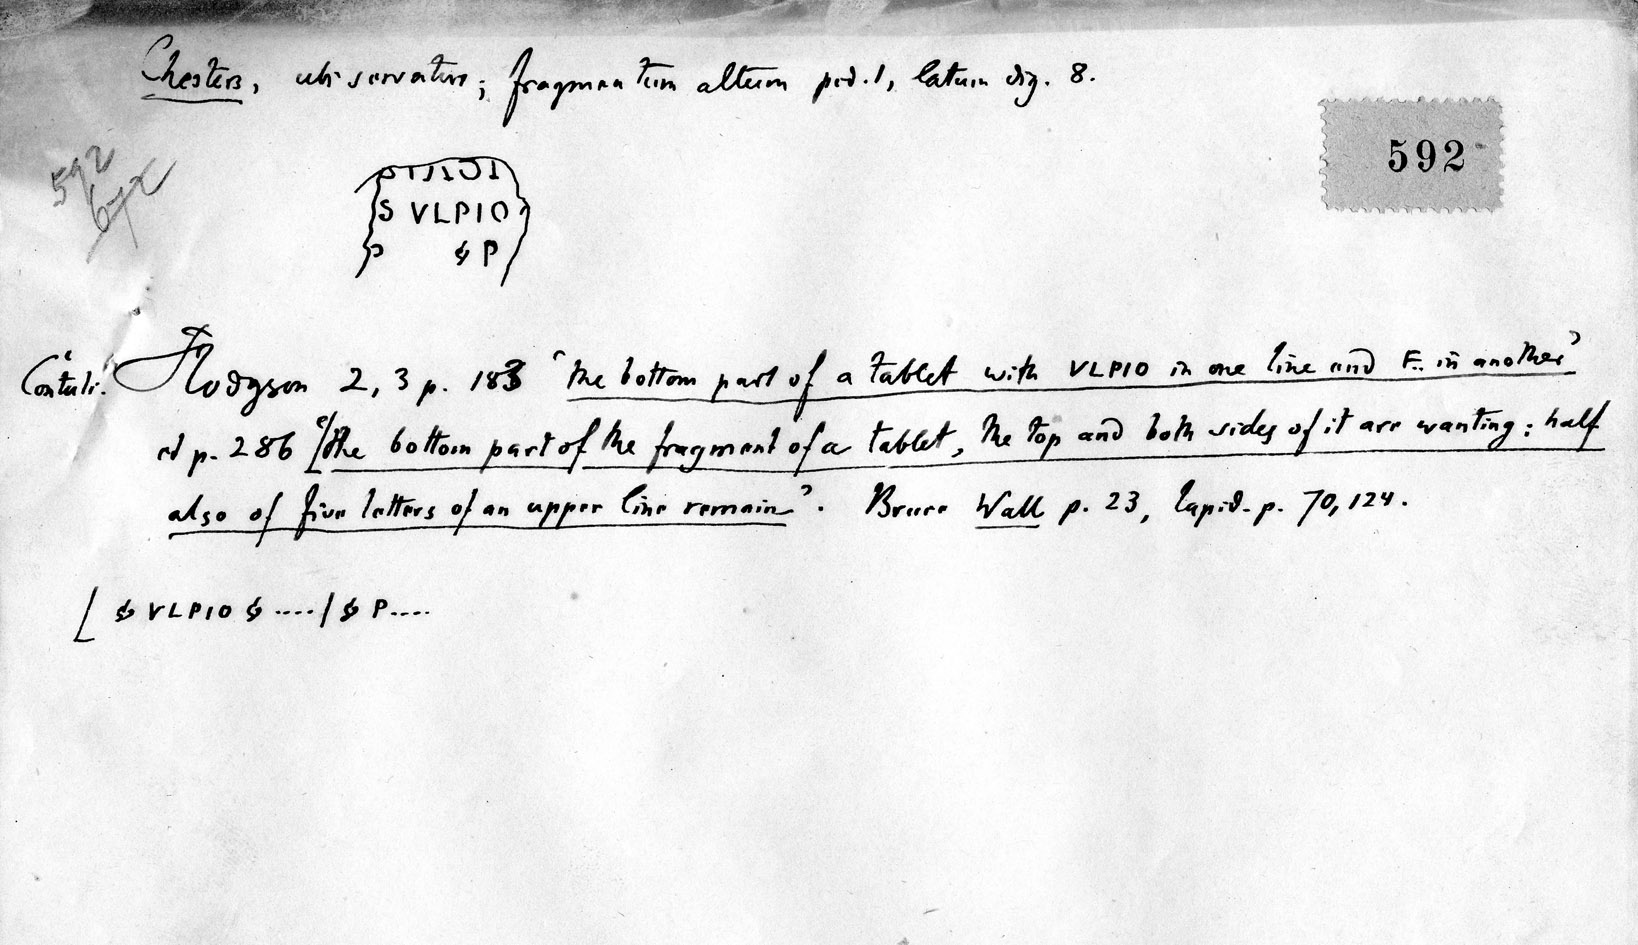 Chesters, ubi servatur; fragmentum altum ped. 1, latum dig. 8.
592
592
S VLPIO
P P
Contuli. Hodgson 2, 3 p. 183 'the bottom part of a tablet with VLPIO in one line and F.. in another'
et p. 286 [‘the bottom part of the fragment of a tablet, the top and both sides of it are wanting: half
also of five letters of an upper line remain’. Bruce Wall p. 23, lapid. p. 70, 124.
[ VLPIO .... / P....